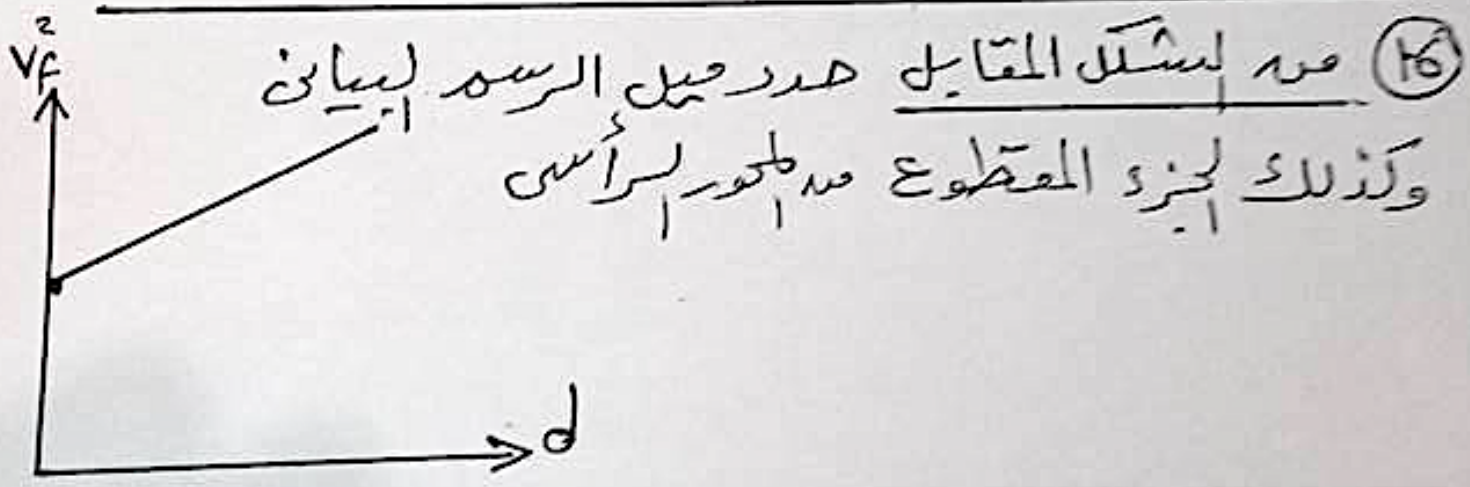 ١٦ من الشكل المقابل حدد ميل الرسم البيانى
وكذلك الجزء المقطوع من المحور الرأسى
V_f²
d